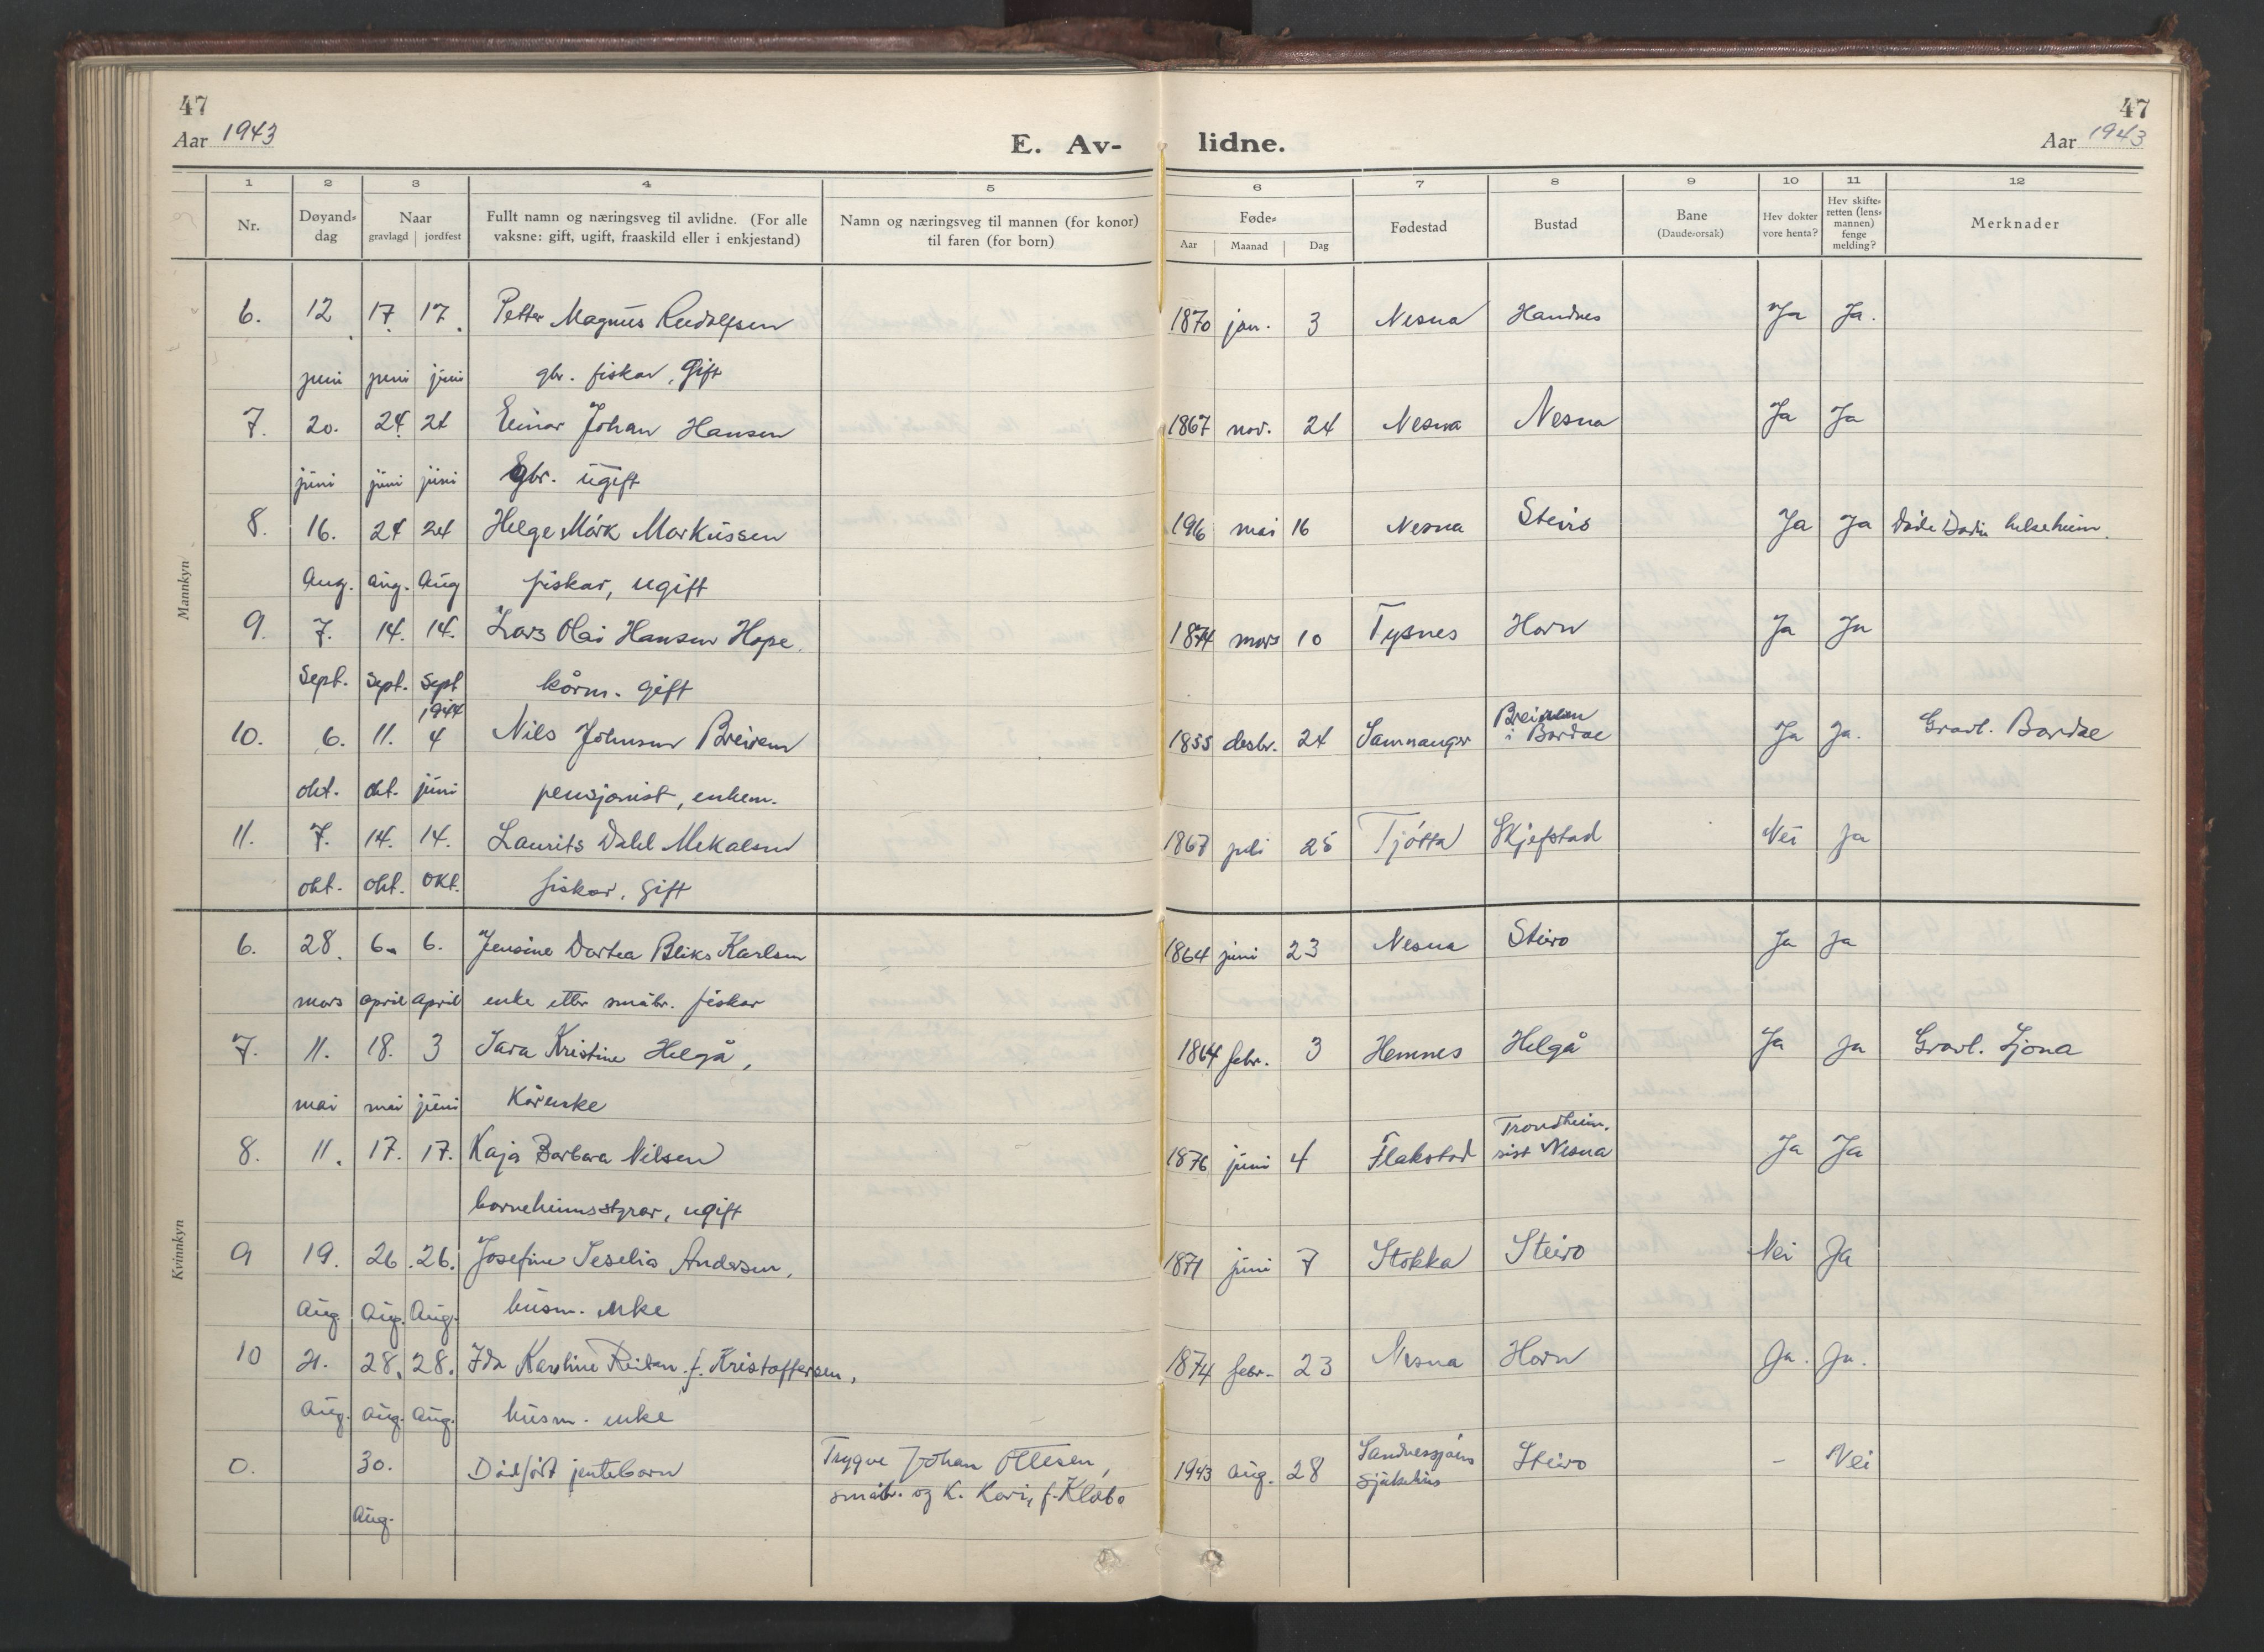 47 47
Aar 1943 E. Av- lidne. Aar 1943
1 2 3 4 5 6 7 8 9 10 11 12
Nr. Døyand-dag Naar gravlagd jordfest Fullt namn og næringsveg til avlidne. (For alle vaksne: gift, ugift, fraaskild eller i enkjestand) Namn og næringsveg til mannen (for konor) til faren (for born) Føde- Aar Maanad Dag Fødestad Bustad Bane (Daude-orsak) Hev dokter vore henta? Hev skifte-retten (lens-mannen) fenge melding? Merknader
Mannkyn
6. 12 17. 17. Petter Magnus Rudolfsen 1870 jan. 3 Nesna Handnes Ja Ja.
juni juni juni gbr. fiskar, gift
7. 20. 24. 24 Einar Johan Hansen 1867 nov. 24 Nesna Nesna Ja Ja
juni juni juni gbr. ugift
8. 16. 24 24 Helge Mórk Markussen 1916 mai 16 Nesna Steiro Ja Ja helseheim.
Aug. aug. Aug fiskar, ugift
9. 7. 14. 14. Lars Olai Hansen Hope. 1874 mars 10 Tysnes Horn Ja Ja
Sept. Sept. Sept kårm. gift
10. 6. 11. 1944 4 Nils Johnsen Breivem 1855 desbr. 24 Samnanger i Bardae Ja Ja. Gravl. Bardae
okt. okt. juni pensjonist, enkem.
11. 7. 14. 14. Laurits Dahl Mikalsen 1867 juli 25 Tjótta Skjefstad Nei Ja
okt. okt. okt. fiskar, gift
Kvinnkyn
6. 28. 6. 6. Jensine Dortea Bliks Karlsen 1864 juni 23 Nesna Steiro Ja Ja
mars april april enke etter småbr. fiskar
7. 11. 18. 3 Sara Kristine Helgå, 1864 febr. 3 Hemnes Helgå Ja Ja Gravl. Sjona
mai mai juni Kårenke
8. 11. 17. 17. Kaja Barbara Nilsen 1876 juni 4 Flakstad Trondheim, sist Nesna Ja Ja
borneheimsstyrar, ugift
9 19. 26. 26. Josefine Seselia Andersen, 1871 juni 7 Stokka Steiro Nei Ja
Aug. Aug. Aug. husm. enke
10 21. 28. 28. Ida Karoline Reitan f. Kristoffersen, 1874 febr. 23 Nesna Horn Ja. Ja.
Aug. Aug. Aug. husm. enke
0. 30. Dódfódt jentebarn Trygve Johan Ottesen, 1943 Aug. 28 Sandnessjóen Steiro - Nei
Aug. småbr. og K. Kari, f. Klæbo sjukehus